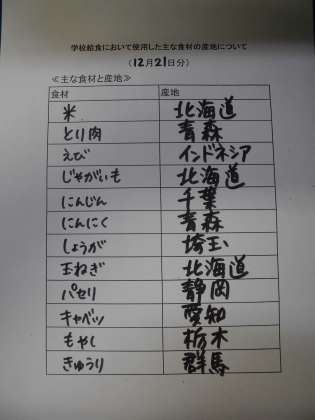 学校給食において使用した主な食材の産地について
(12月21日分)
≪主な食材と産地≫
食材 産地
米 北海道
とり肉 青森
えび インドネシア
じゃがいも 北海道
にんじん 千葉
にんにく 青森
しょうが 埼玉
玉ねぎ 北海道
パセリ 静岡
キャベツ 愛知
もやし 栃木
きゅうり 群馬